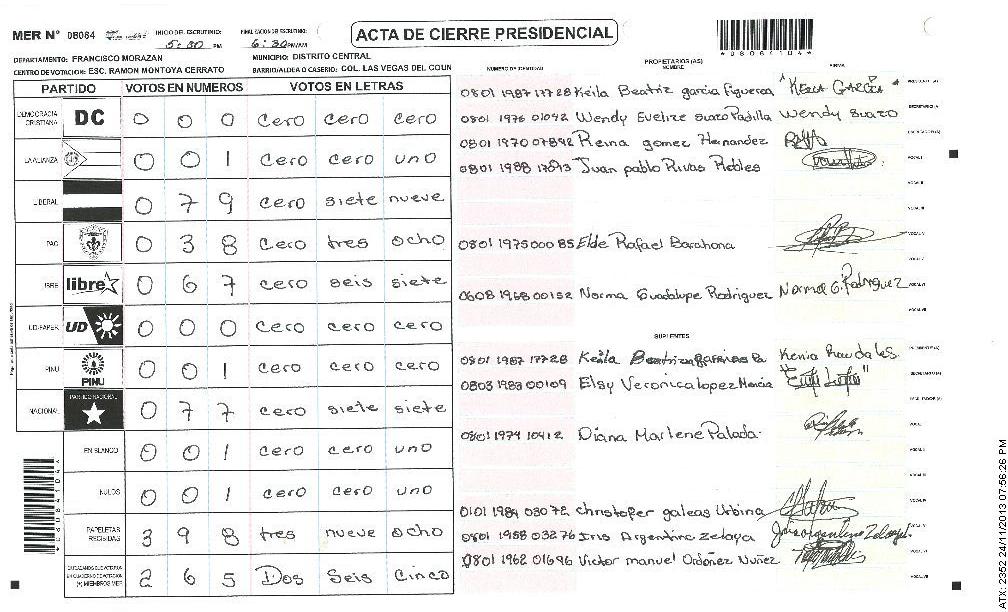 MER Nº 08084 INICIO DEL ESCRUTINIO: 5:30 PM 6:30 PM/AM
ACTA DE CIERRE PRESIDENCIAL
DEPARTAMENTO: FRANCISCO MORAZAN MUNICIPIO: DISTRITO CENTRAL
CENTRO DE VOTACION: ESC. RAMON MONTOYA CERRATO BARRIO/ALDEA O CASERIO: COL. LAS VEGAS DEL COUN
PARTIDO VOTOS EN NUMEROS VOTOS EN LETRAS
DEMOCRACIA CRISTIANA DC 0 0 0 cero cero cero
LA ALIANZA 0 0 1 cero cero uno
LIBERAL 0 7 9 cero siete nueve
PAC 0 3 8 cero tres ocho
LIBRE libre 0 6 7 cero seis siete
UD-FAPER UD 0 0 0 cero cero cero
PINU PINU 0 0 1 cero cero cero
NACIONAL PARTIDO NACIONAL 0 7 7 cero siete siete
EN BLANCO 0 0 1 cero cero uno
NULOS 0 0 1 cero cero uno
PAPELETAS RECIBIDAS 3 9 8 tres nueve ocho
2 6 5 Dos Seis Cinco
NUMERO DE IDENTIDAD PROPIETARIOS (AS) NOMBRE FIRMA
0801 1987 17728 Keila Beatriz garcia Figueroa
0801 1976 01042 Wendy Evelize Suazo Padilla Wendy Suazo
0801 1970 07892 Reina gomez Hernandez
0801 1988 17093 Juan pablo Rivas Robles
0801 1975000 85 Elde Rafael Barahona
0608 1968 00152 Norma Guadalupe Rodriguez Norma G. Rodriguez
SUPLENTES
0801 1987 17728 Keila Kenia Raudales
0803 1983 00109 Elsy Veronica Lopez
0801 1974 10412 Diana Marlene Palada
0101 1984 03072 christopher galeas Urbina
0801 1958 03276 Iris Argentina Zelaya
0801 1962 01696 Victor manuel Ordoñez Nuñez
ATX: 2352 24/11/2013 07:56:26 PM